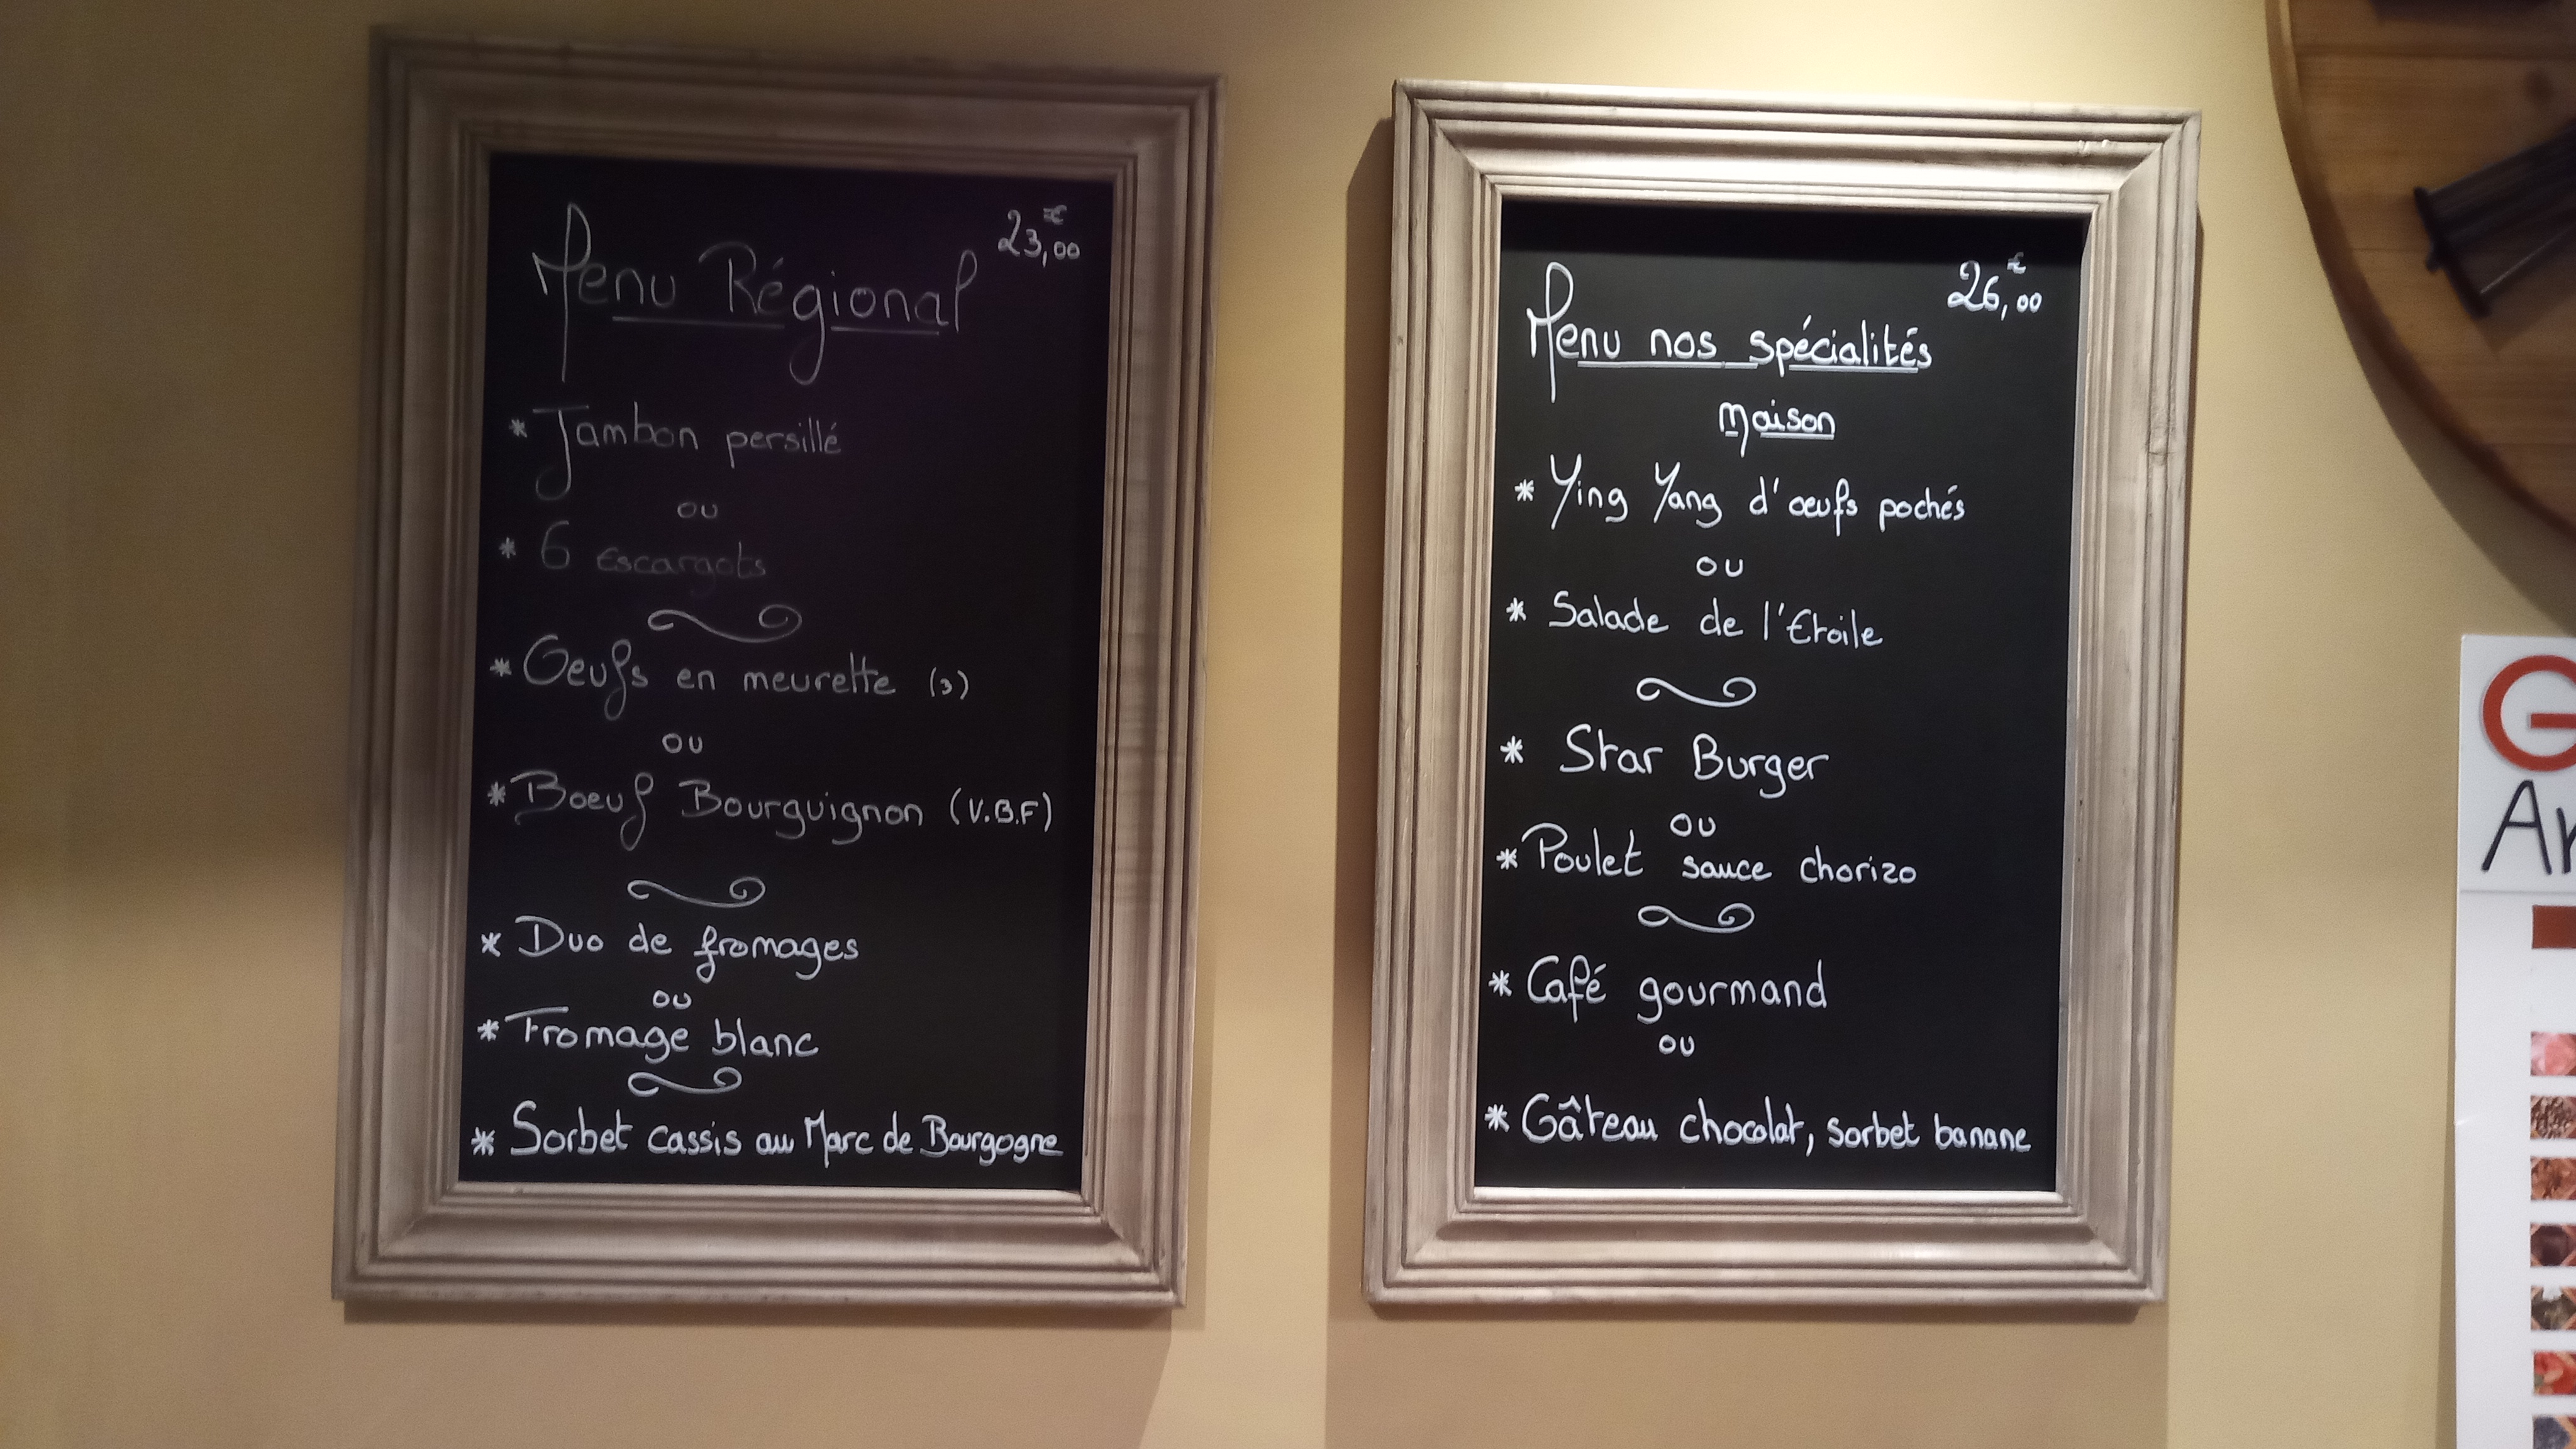 Menu Régional
23,00€
* Jambon persillé
ou
* 6 escargots
* Oeufs en meurette (3)
ou
* Boeuf Bourguignon (V.B.F)
* Duo de fromages
ou
* Fromage blanc
* Sorbet cassis au Marc de Bourgogne
26,00€
Menu nos spécialités
Maison
* Ying Yang d'oeufs pochés
ou
* Salade de l'Etoile
* Star Burger
ou
* Poulet sauce chorizo
* Café gourmand
ou
* Gâteau chocolat, sorbet banane